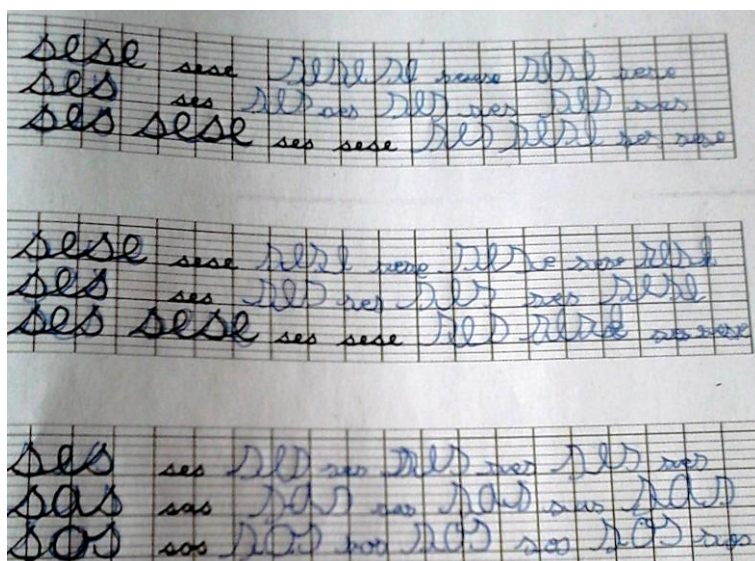 sese sese sese se sese sese sese
ses ses ses ses ses ses ses ses
ses sese ses sese ses sese ses sese
sese sese sese sese sese sese sese
ses ses ses ses ses ses sese
ses sese ses sese ses sese ses sese
ses ses ses ses ses ses ses ses
sas sas sas sas sas sas sas
sos sos sos sos sos sos sos sos